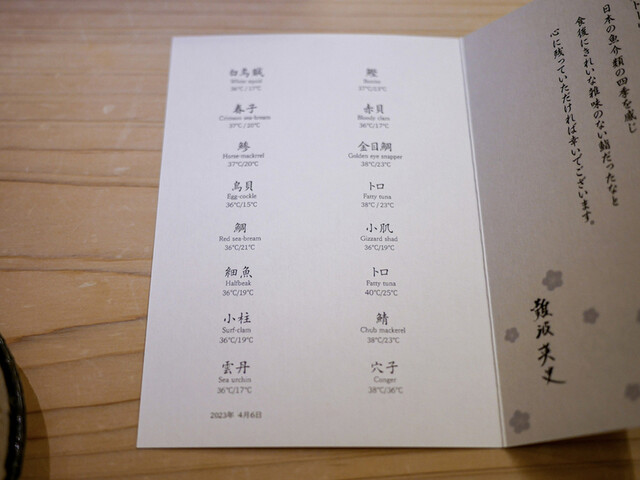 白烏賊
White squid
36℃/17℃
春子
Crimson sea-bream
37℃/20℃
鯵
Horse-mackerel
37℃/20℃
鳥貝
Egg-cockle
36℃/15℃
鯛
Red sea-bream
36℃/21℃
細魚
Halfbeak
36℃/19℃
小柱
Surf-clam
36℃/19℃
雲丹
Sea urchin
36℃/17℃
鰹
Bonito
37℃/23℃
赤貝
Bloody clam
36℃/17℃
金目鯛
Golden eye snapper
38℃/23℃
トロ
Fatty tuna
38℃/23℃
小肌
Gizzard shad
36℃/19℃
トロ
Fatty tuna
40℃/25℃
鯖
Chub mackerel
38℃/23℃
穴子
Conger
38℃/36℃
2023年 4月6日
日本の魚介類の四季を感じ
食後にきれいな雑味のない鮨だったなと
心に残っていただければ幸いでございます。
難波英史